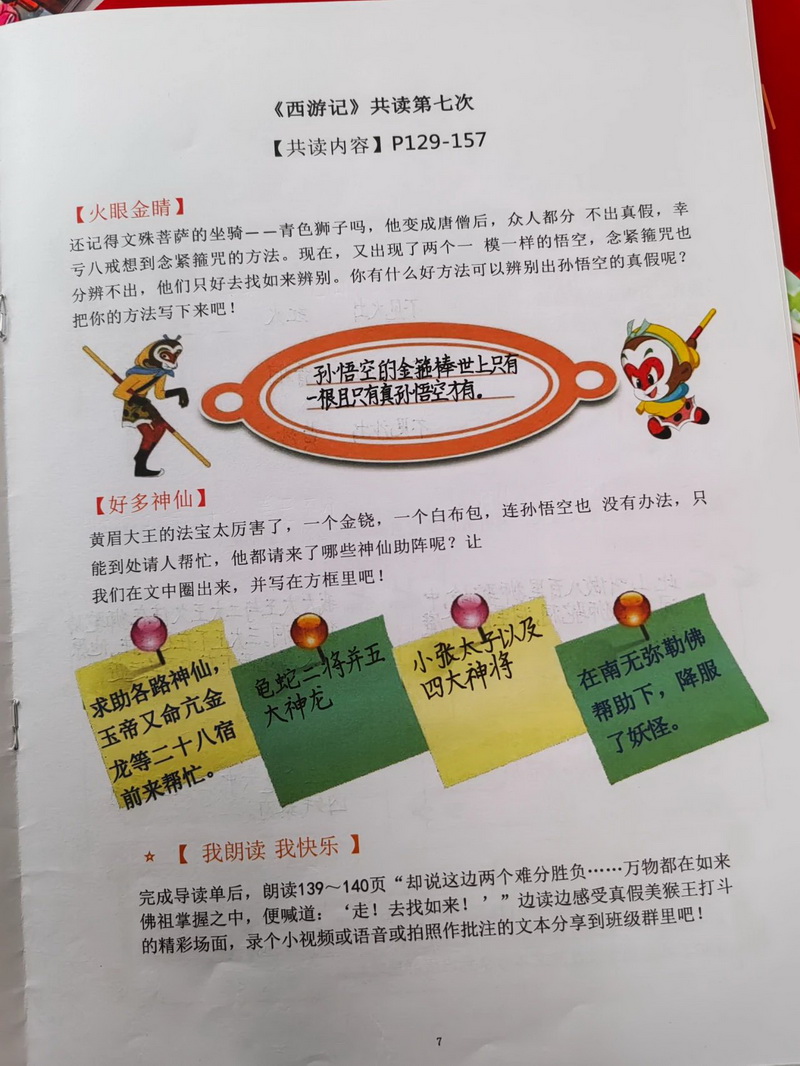 《西游记》共读第七次
【共读内容】P129-157
【火眼金睛】
还记得文殊菩萨的坐骑——青色狮子吗，他变成唐僧后，众人都分 不出真假，幸
亏八戒想到念紧箍咒的方法。现在，又出现了两个一 模一样的悟空，念紧箍咒也
分辨不出，他们只好去找如来辨别。你有什么好方法可以辨别出孙悟空的真假呢？
把你的方法写下来吧！
孙悟空的金箍棒世上只有
一根且只有真孙悟空才有。
【好多神仙】
黄眉大王的法宝太厉害了，一个金铙，一个白布包，连孙悟空也 没有办法，只
能到处请人帮忙，他都请来了哪些神仙助阵呢？让
我们在文中圈出来，并写在方框里吧！
求助各路神仙，
玉帝又命亢金
龙等二十八宿
前来帮忙。
龟蛇二将并五
大神龙
小张太子以及
四大神将
在南无弥勒佛
帮助下，降服
了妖怪。
☆ 【 我朗读 我快乐 】
完成导读单后，朗读139～140页“却说这边两个难分胜负……万物都在如来
佛祖掌握之中，便喊道：‘走！去找如来！’”边读边感受真假美猴王打斗
的精彩场面，录个小视频或语音或拍照作批注的文本分享到班级群里吧！
7